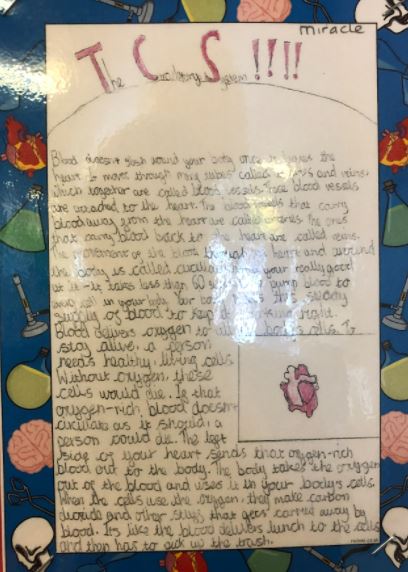 Miracle
The Circulatory System !!!!
Blood doesn't slosh around your body once it leaves the
heart. It moves through many tubes called arteries and veins,
which together are called blood vessels. These blood vessels
are attached to the heart. The blood vessels that carry
blood away from the heart are called arteries. The ones
that carry blood back to the heart are called veins.
The movement of the blood through the heart and around
the body is called circulation and your really good
at it - it takes less than 60 seconds to pump blood to
every cell in your body. Your body needs this steady
supply of blood to keep it working right.
Blood delivers oxygen to all the body's cells. To
stay alive, a person
needs healthy, living cells.
Without oxygen, these
cells would die. If that
oxygen-rich blood doesn't
circulate as it should, a
person would die. The left
side of your heart sends that oxygen-rich
blood out to the body. The body takes the oxygen
out of the blood and uses it in your body's cells.
When the cells use the oxygen, they make carbon
dioxide and other stuff that gets carried away by
blood. It's like the blood delivers lunch to the cells
and then has to pick up the trash.